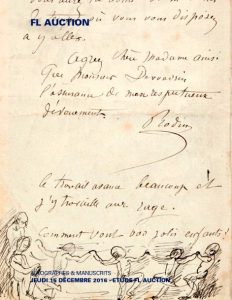 FL AUCTION
vous vous disposez
a y aller.
Agréez chère Madame ainsi
que Monsieur
l'assurance de mon respectueux
dévouement
Rodin
le travail avance beaucoup et
j'y travaille avec rage.
Comment vont vos jolis enfants?
AUTOGRAPHES & MANUSCRITS
JEUDI 15 DÉCEMBRE 2016 - ETUDE FL AUCTION